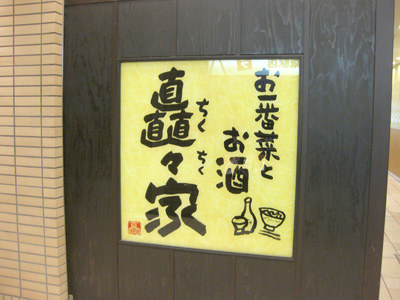 お一番菜と
お酒
矗々家
ちくちく